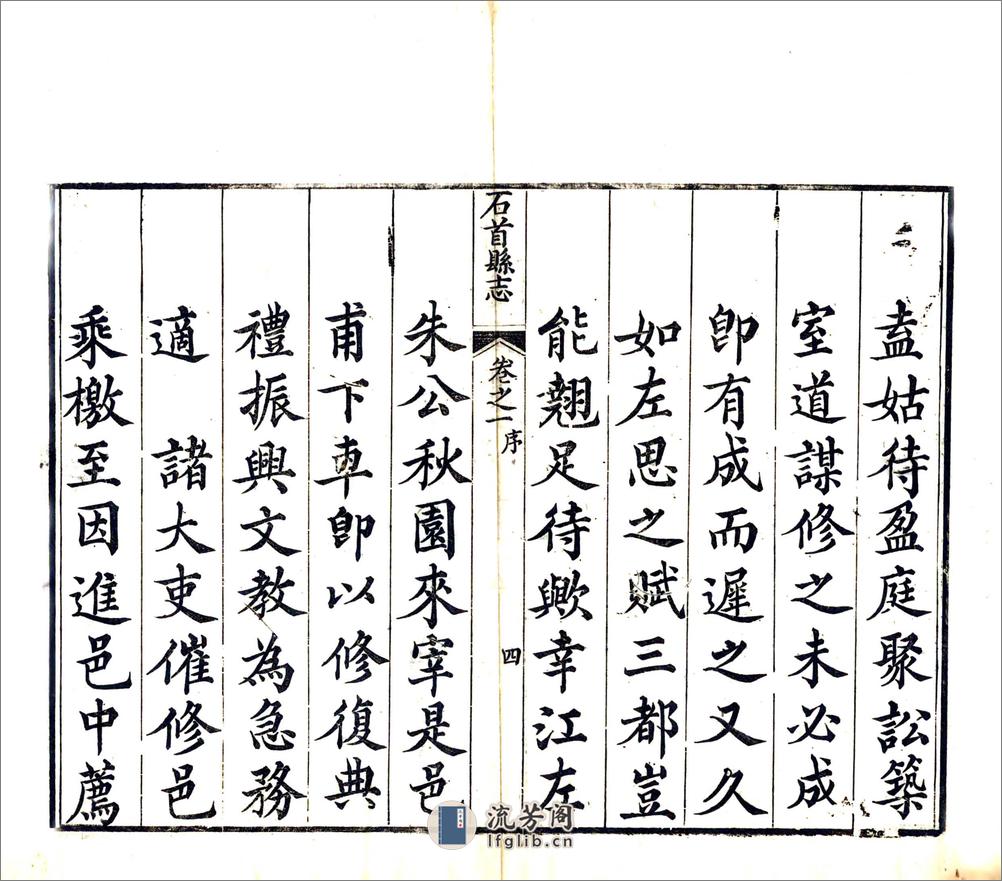 盍姑待盈庭聚訟築
室道謀修之未必成
卽有成而遲之又久
如左思之賦三都豈
能翹足待歟幸江左
石首縣志
卷之一
序
四
朱公秋園來宰是邑
甫下車卽以修復典
禮振興文教為急務
適 諸大吏催修邑
乘檄至因進邑中薦
流芳阁
lfglib.cn